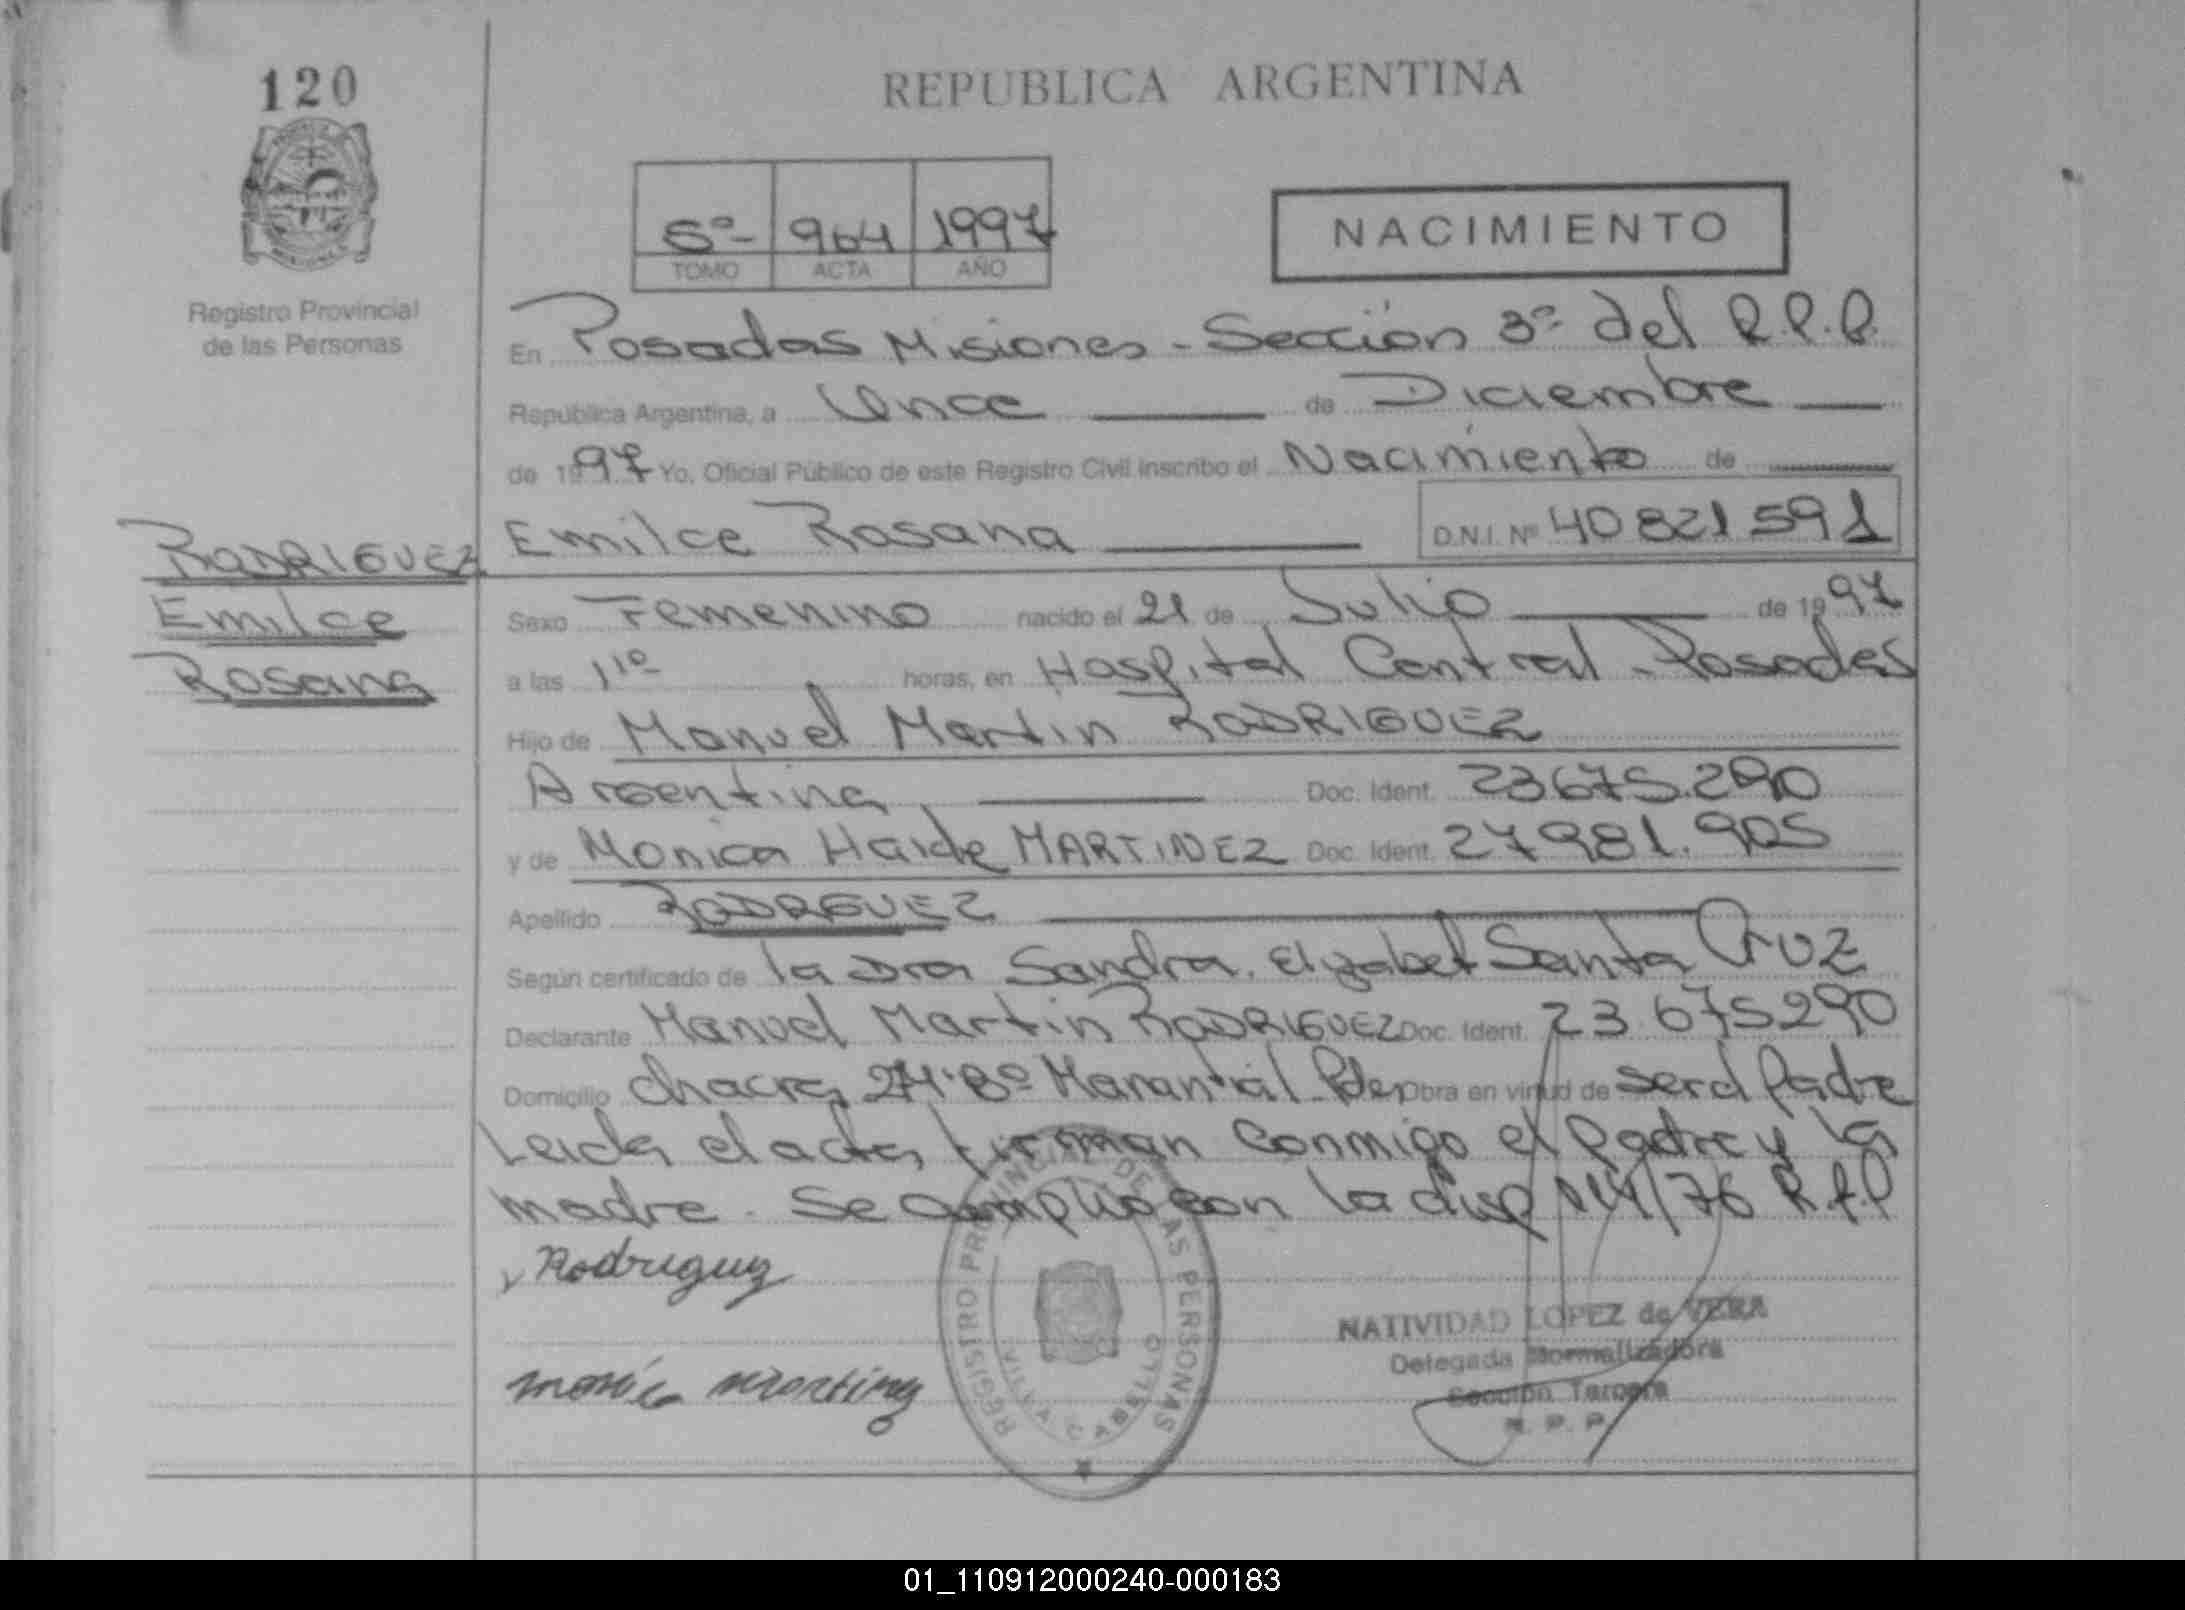 120
REPUBLICA ARGENTINA
5º- 964 1997
TOMO ACTA AÑO
NACIMIENTO
Registro Provincial
de las Personas
En Posadas Misiones - Sección 3º del R.P.P.
República Argentina, a Once de Diciembre
de 1997 Yo, Oficial Público de este Registro Civil inscribo el Nacimiento de
Emilce Rosana D.N.I. Nº 40821591
RODRIGUEZ
Emilce
Rosana
Sexo Femenino nacido el 21 de Julio de 1997
a las 11º horas, en Hospital Central - Posadas
Hijo de Manuel Martin RODRIGUEZ
Argentina, Doc. Ident. 23675.290
y de Monica Haide MARTINEZ Doc. Ident. 27981.905
Apellido RODRGUEZ
Según certificado de la Dra Sandra Elizabet Santa Cruz
Declarante Manuel Martin RODRIGUEZ Doc. Ident. 23.675290
Domicilio chacra 274. Bº Manantial Pdas Obra en virtud de ser el Padre
Leida el acta firman conmigo el Padre y la
madre. Se amplio con la disp /76 R.P.P
Rodriguez
monica martinez
REGISTRO PROVINCIAL DE LAS PERSONAS
VILLA CABELLO
NATIVIDAD LOPEZ de VERA
Delegada Normalizadora
Sección Tercera
R. P. P.
01_110912000240-000183